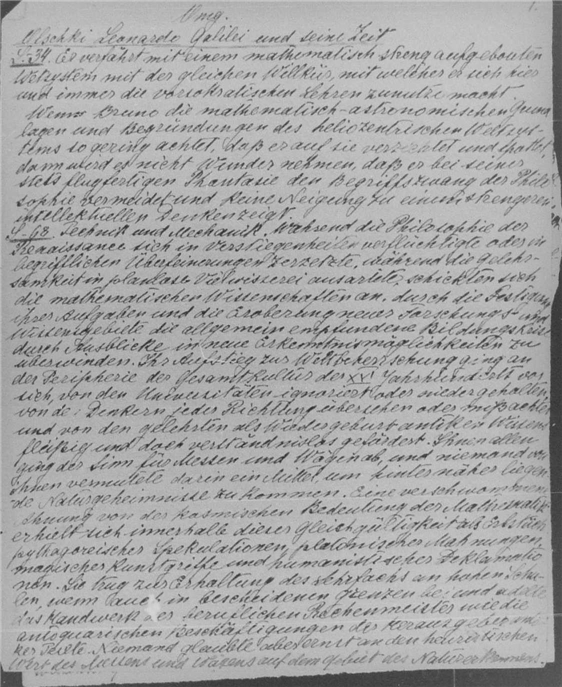 Olschki Leonardo Galilei und seine Zeit
S. 34. Er verfährt mit einem mathematisch streng aufgebauten
Weltsystem mit der gleichen Willkür, mit welcher er sich hier
und immer die vorsokratischen Lehren zunutze macht
Wenn Bruno die mathematisch-astronomischen Grund
lagen und Begründungen des heliozentrischen Weltsys-
tems so gering achtet, daß er auf sie verzichtet und spottet,
dann wird es nicht Wunder nehmen, daß er bei seiner
stets flugfertigen Phantasie den Begriffszwang der Philo
sophie vermeidet und keine Neigung zu einem strengeren
intellektuellen Denken zeigt.
S. 68. Technik und Mechanik. Während die Philosophie der
Renaissance sich in Verstiegenheiten verflüchtigte oder in
begrifflichen Überfeinerungen zersetzte, während die Gelehr-
samkeit in planlose Vielwisserei ausartete, schickten sich
die mathematischen Wissenschaften an, durch die Festigung
ihrer Aufgaben und die Eroberung neuer Forschungs- und
Wissensgebiete die allgemein empfundene Bildungskrise
durch Ausblicke in neue Erkenntnismöglichkeiten zu
überwinden. Ihr Aufstieg zur Weltbeherrschung ging an
der Peripherie der Gesamtkultur des XVI Jahrhunderts vor
sich, von den Universitäten ignoriert oder niedergehalten
von den Denkern jeder Richtung übersehen oder mißachtet
und von den Gelehrten als Wiedergeburt antiken Wissens
fleißig und doch verständnislos gefördert. Ihnen allen
ging der Sinn für Messen und Wägen ab, und niemand von
ihnen vermutete darin ein Mittel, um hinter näher liegen
de Naturgeheimnisse zu kommen. Eine verschwommene
Ahnung von der kosmischen Bedeutung der Mathematik
erhielt sich innerhalb dieser Gleichgültigkeit als Erbstück
pythagoreischer Spekulationen, platonischer Mahnungen,
magischer Kunstgriffe und humanistischer Deklamatio
nen. Sie trug zur Erhaltung des Lehrfachs an hohen Schu-
len, wenn auch in bescheidenen Grenzen bei und
das Handwerk der beruflichen Rechenmeister wie die
antiquarischen Beschäftigungen der Herausgeber anti
ker Texte. Niemand glaubte aber ernst an den heuristischen
Wert des Messens und Wägens auf dem Gebiet des Naturerkennens.